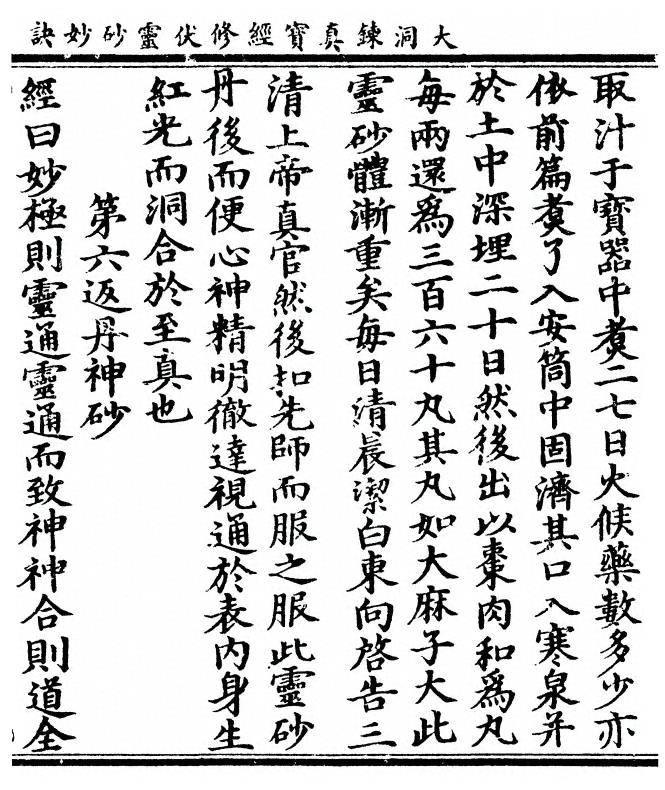 大洞鍊真寶經修伏靈砂妙訣
取汁于寶器中煑二七日火候藥數多少亦
依前篇煑了入安筒中固濟其口入寒泉并
於土中深埋二十日然後出以棗肉和為丸
每兩還為三百六十丸其丸如大麻子大此
靈砂體漸重矣每日清晨潔白東向啓告三
清上帝真官然後扣先師而服之服此靈砂
丹後而便心神精明徹達視通於表內身生
紅光而洞合於至真也
第六返丹神砂
經曰妙極則靈通靈通而致神神合則道全